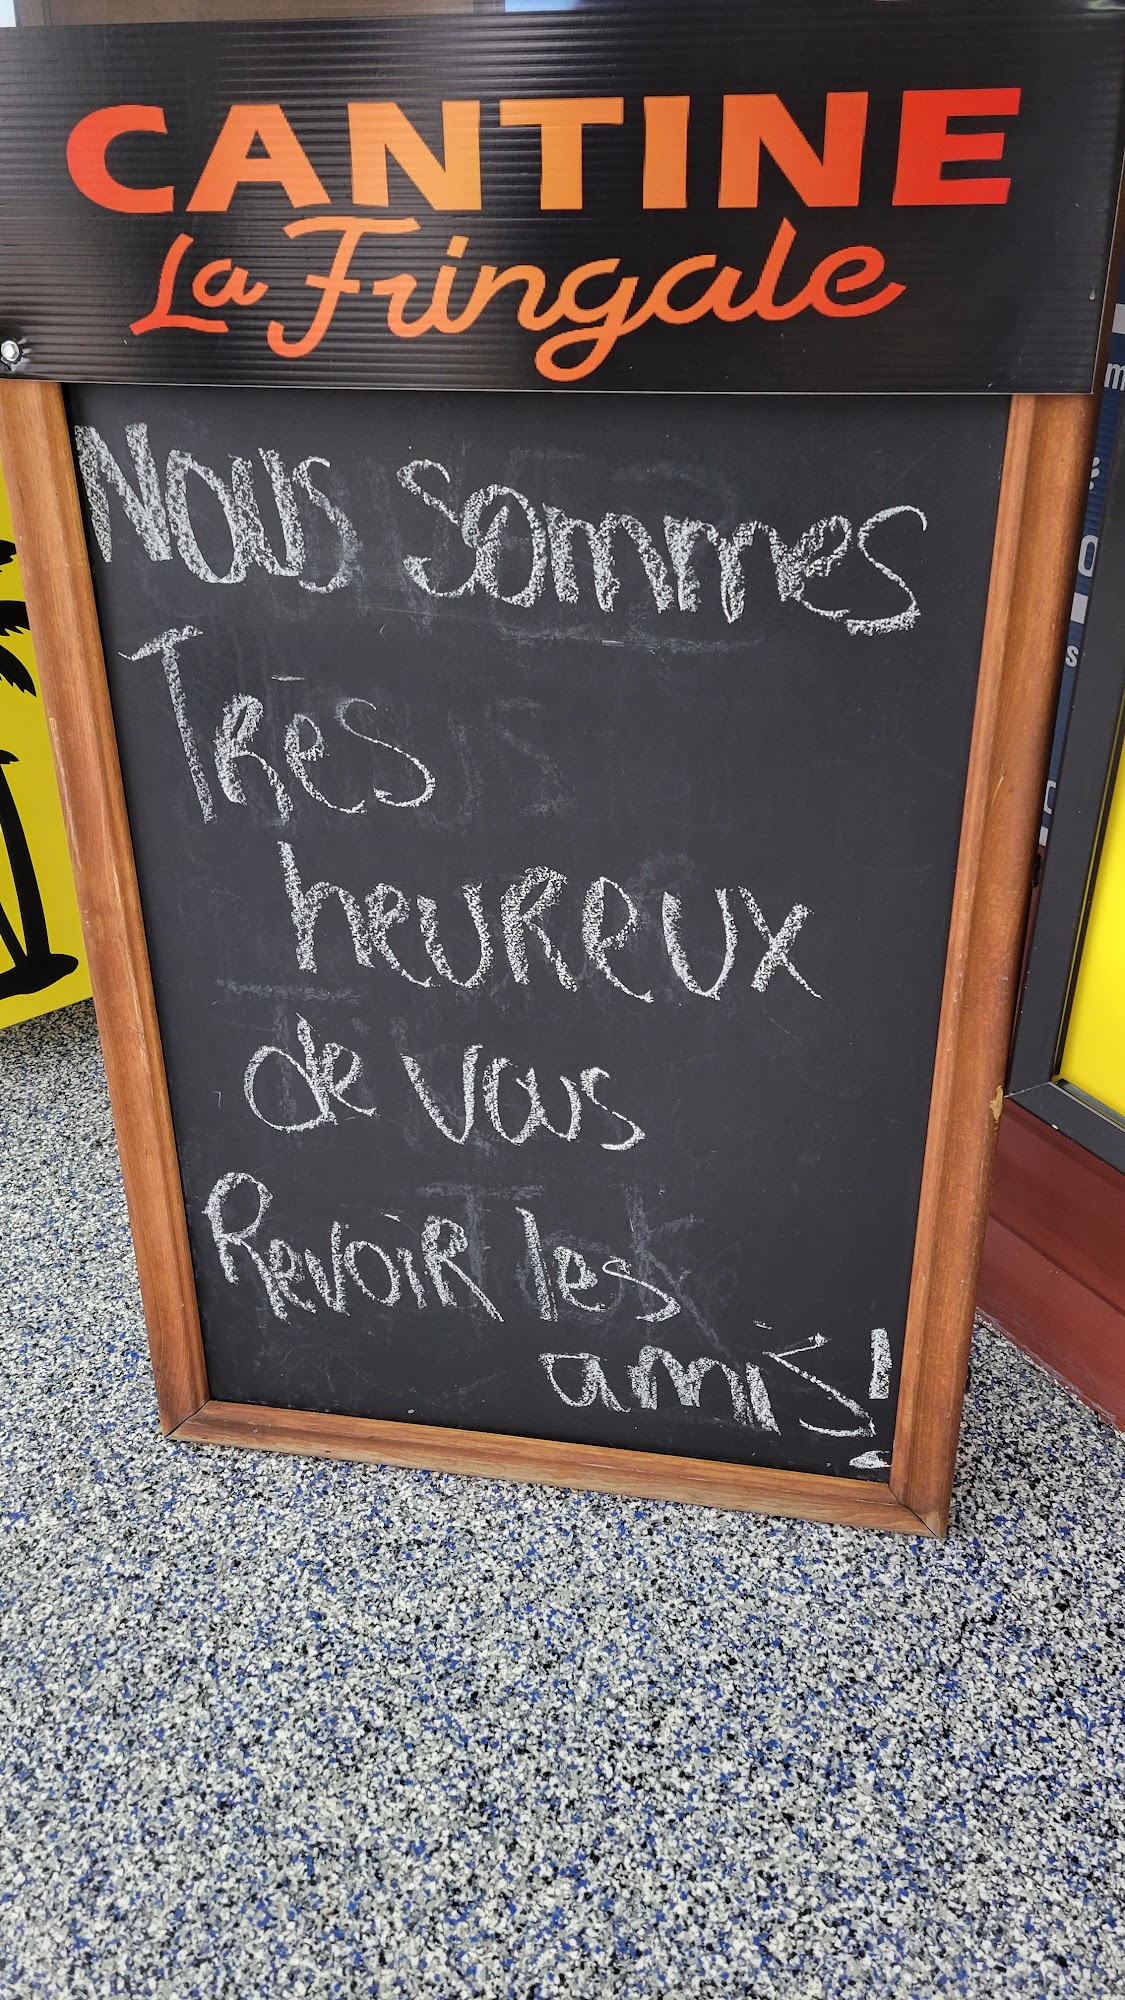 CANTINE
La Fringale
Nous sommes
Très
heureux
de vous
Revoir les
amis!